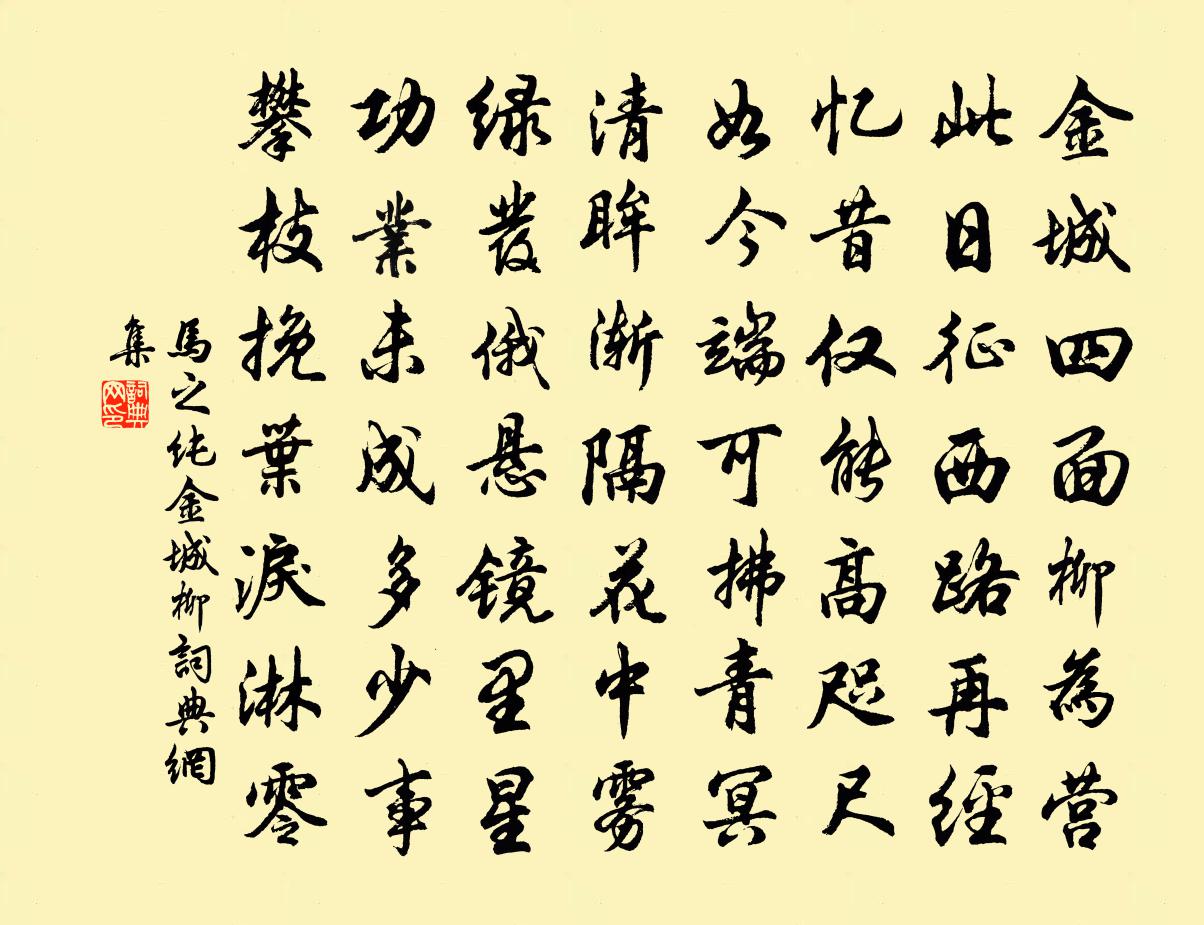 金城四面柳為营
此日征西路再經
忆昔仅能高咫尺
如今端可拂青冥
清眸渐隔花中雾
绿发俄悬镜里星
功業未成多少事
攀枝挽葉淚淋零
馬之纯金城柳詞典網
集
詞典
网印